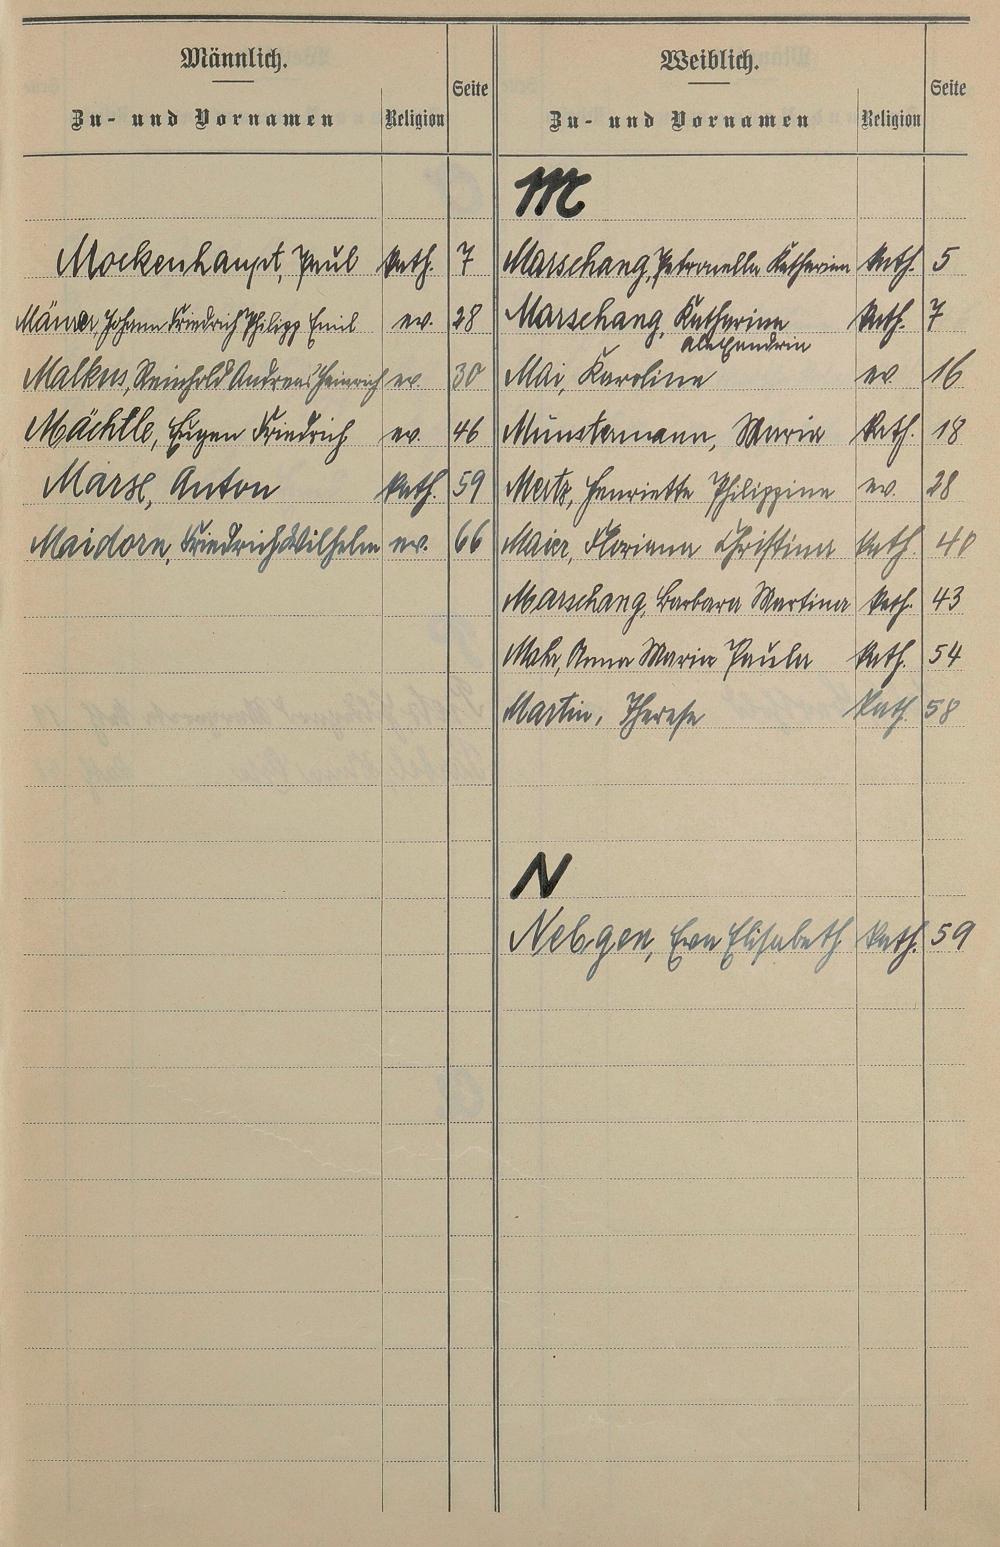 Männlich.
Zu- und Vornamen Religion Seite
Mockenhaupt, Paul kath. 7
Männer, Johann Friedrich Philipp Emil ev. 28
Malkus, Reinhold Andreas Heinrich ev. 30
Mächtle, Eugen Friedrich ev. 46
Marse, Anton kath. 59
Maidorn, Friedrich Wilhelm ev. 66
Weiblich.
Zu- und Vornamen Religion Seite
M
Marschang, Petronella Katharina kath. 5
Marschang, Katharina kath. 7
Alexandrin
Mai, Karolina ev. 16
Münstermann, Maria kath. 18
Mertz, Henriette Philippine ev. 28
Maier, Floriana Christina kath. 40
Marschang, Barbara Martina kath. 43
Mahr, Anna Maria Paula kath. 54
Martin, Therese kath. 58
N
Nebgen, Eva Elisabeth kath. 59